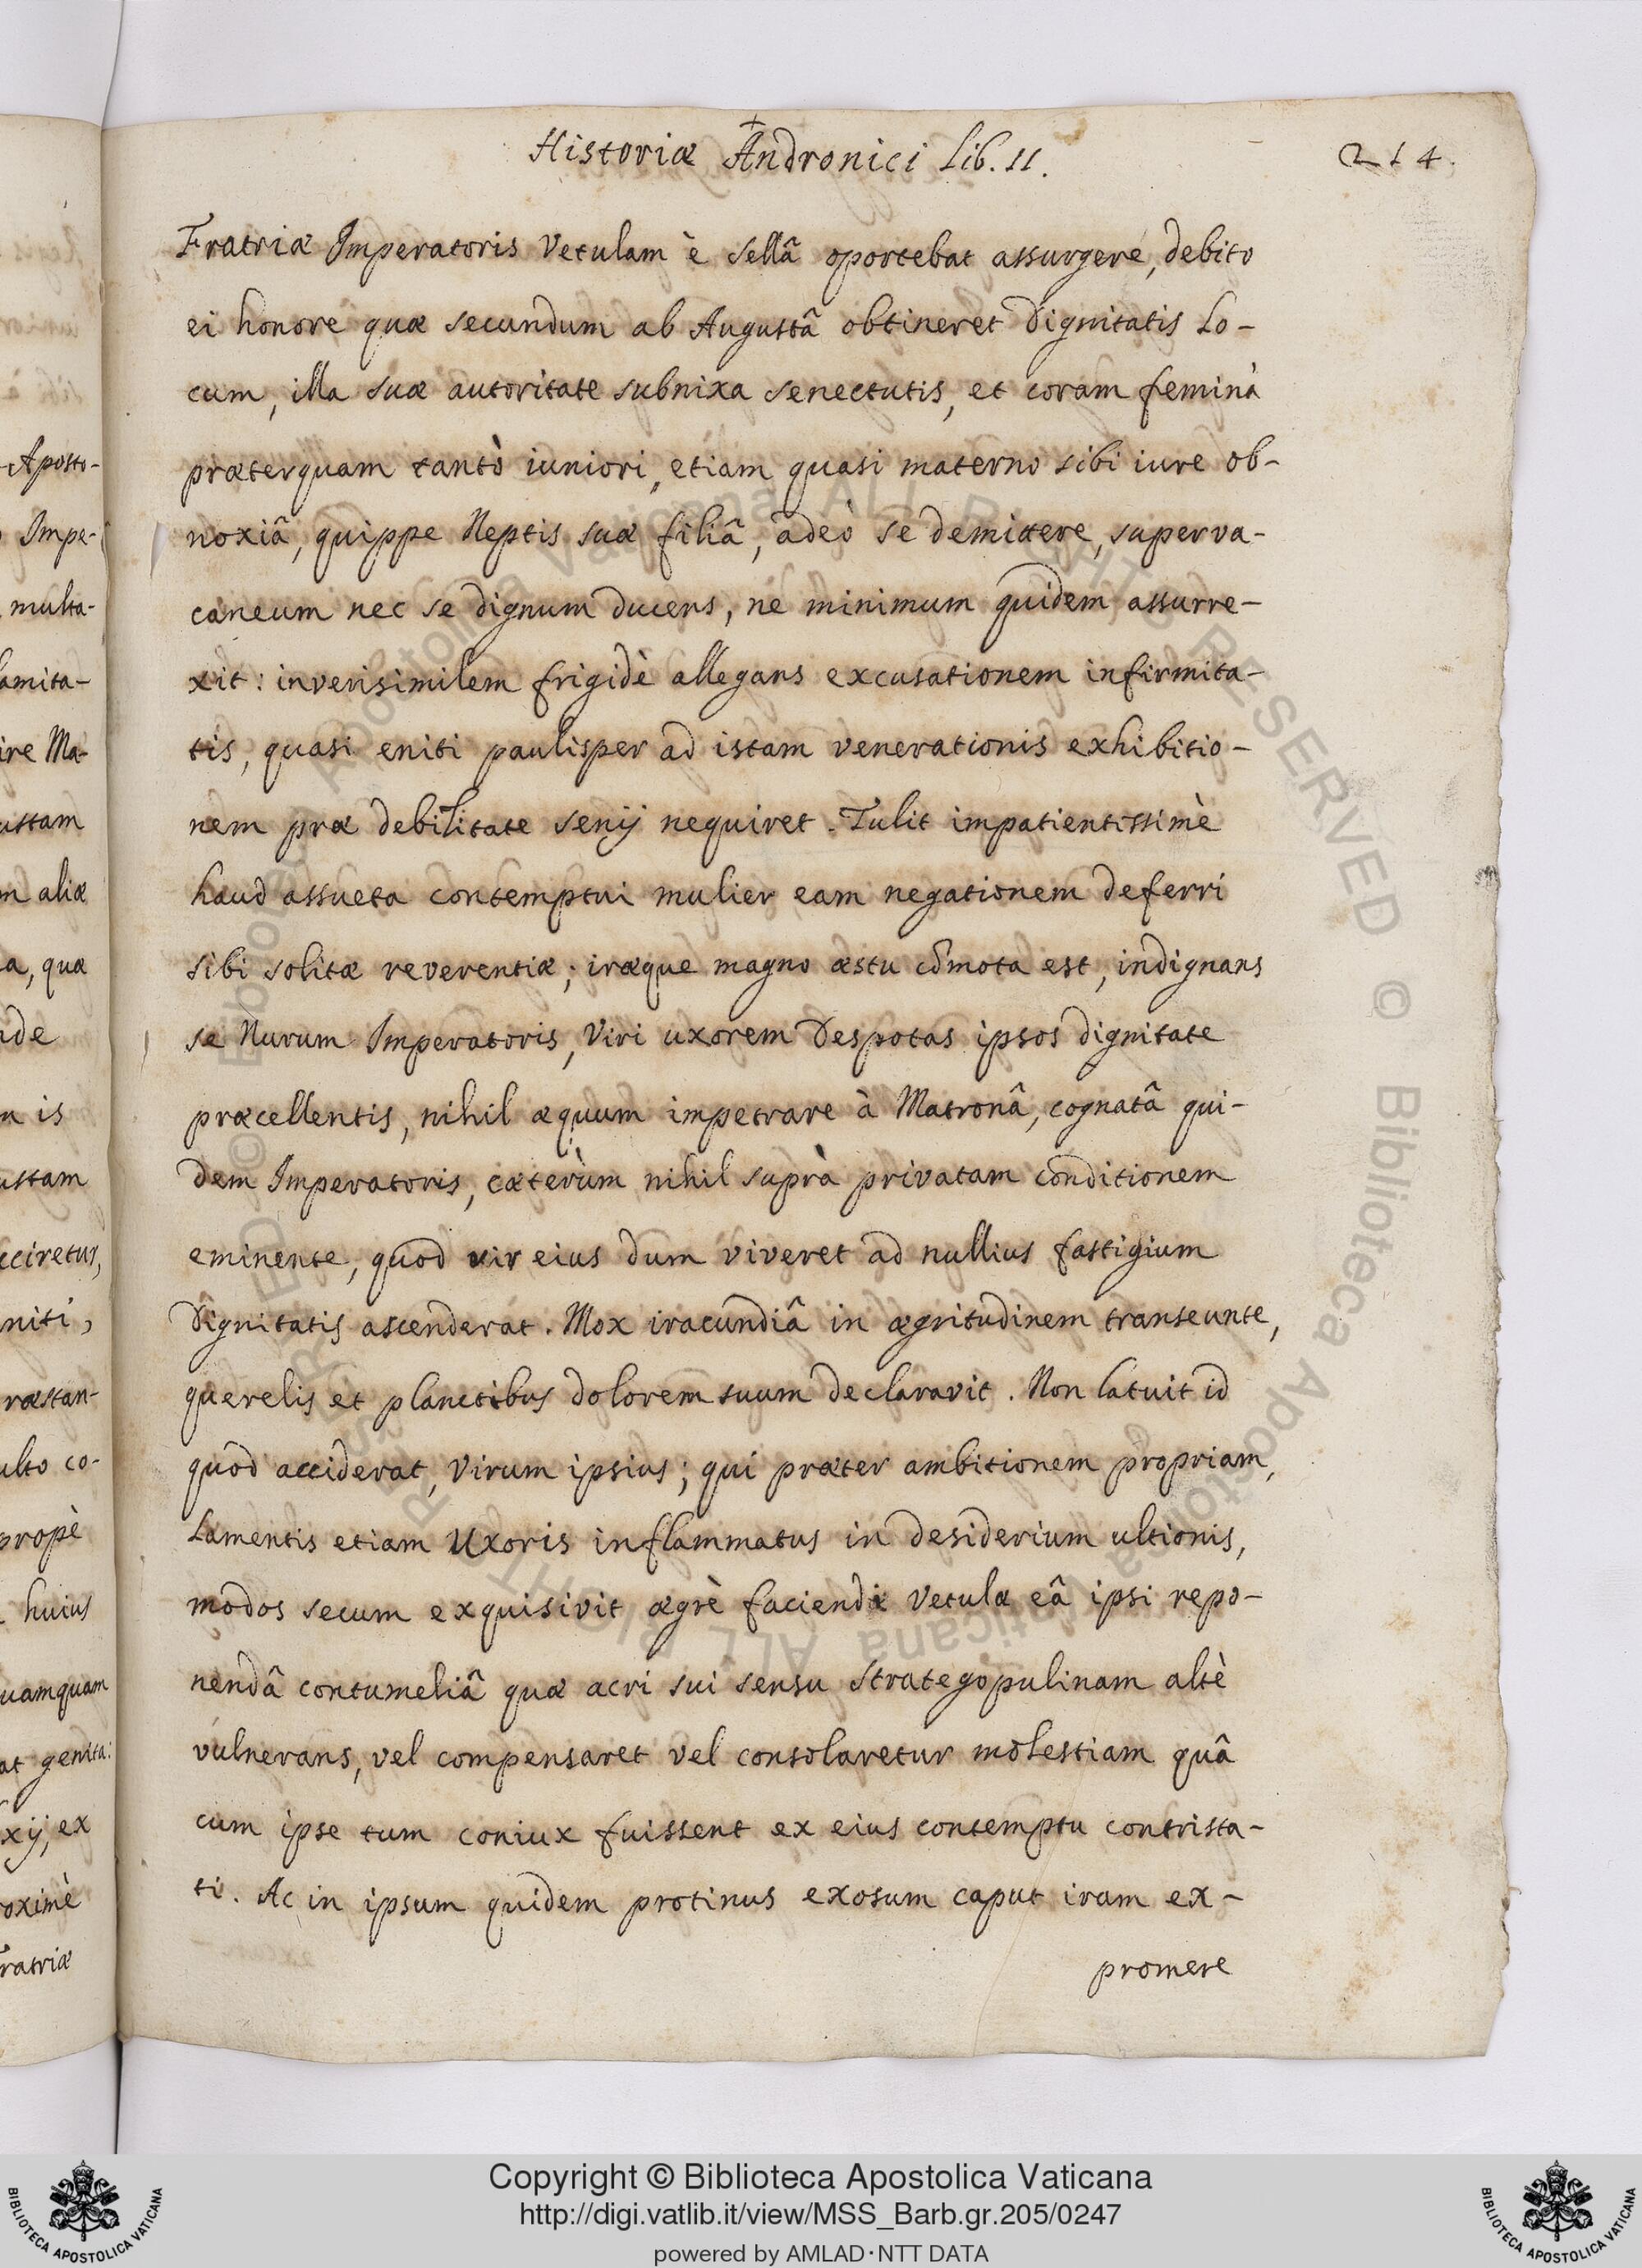 Historiæ Andronici Lib. II.
214.
Fratriæ Imperatoris Vetulam è sellâ oportebat assurgere, debito
ei honore quæ secundum ab Augustâ obtineret dignitatis Lo-
cum, illa suæ autoritate subnixa senectutis, et coram feminâ
præterquam tantò iuniori, etiam quasi materno sibi iure ob-
noxiâ, quippe Neptis suæ filiâ, adeò se demittere, superva-
caneum nec se dignum ducens, ne minimum quidem assurre-
xit: inverisimilem frigidè allegans excusationem infirmita-
tis, quasi eniti paulisper ad istam venerationis exhibitio-
nem præ debilitate senij nequiret. Tulit impatientissimè
haud assueta contemptui mulier eam negationem deferri
sibi solitæ reverentiæ; iræque magno æstu cõmota est, indignans
se Nurum Imperatoris, Viri uxorem Despotas ipsos dignitate
præcellentis, nihil æquum impetrare à Matronâ, cognatâ qui-
dem Imperatoris, cæterùm nihil suprà privatam conditionem
eminente, quod vir eius dum viveret ad nullius fastigium
Dignitatis ascenderat. Mox iracundiâ in ægritudinem transeunte,
querelis et planctibus dolorem suum declaravit. Non latuit id
quod acciderat, Virum ipsius; qui præter ambitionem propriam,
Lamentis etiam Uxoris inflammatus in desiderium ultionis,
modos secum exquisivit ægrè faciendi Vetulæ eâ ipsi repo-
nendâ contumeliâ quæ acri sui sensu Strategopulinam altè
vulnerans, vel compensaret vel consolaretur molestiam quâ
cum ipse tum coniux fuissent ex eius contemptu contrista-
ti. Ac in ipsum quidem protinus exosum caput iram ex-
promere
Aposto-
Impe-
multa-
lamita-
ire Ma-
ustam
m aliæ
a, quæ
nde
is
ustam
cciretur,
niti,
ræstan-
ulto co-
propè
huius
uamquam
at genita:
xij, ex
roximè
Fratriæ
Copyright © Biblioteca Apostolica Vaticana
http://digi.vatlib.it/view/MSS_Barb.gr.205/0247
powered by AMLAD·NTT DATA
BIBLIOTECA APOSTOLICA VATICANA
BIBLIOTECA APOSTOLICA VATICANA